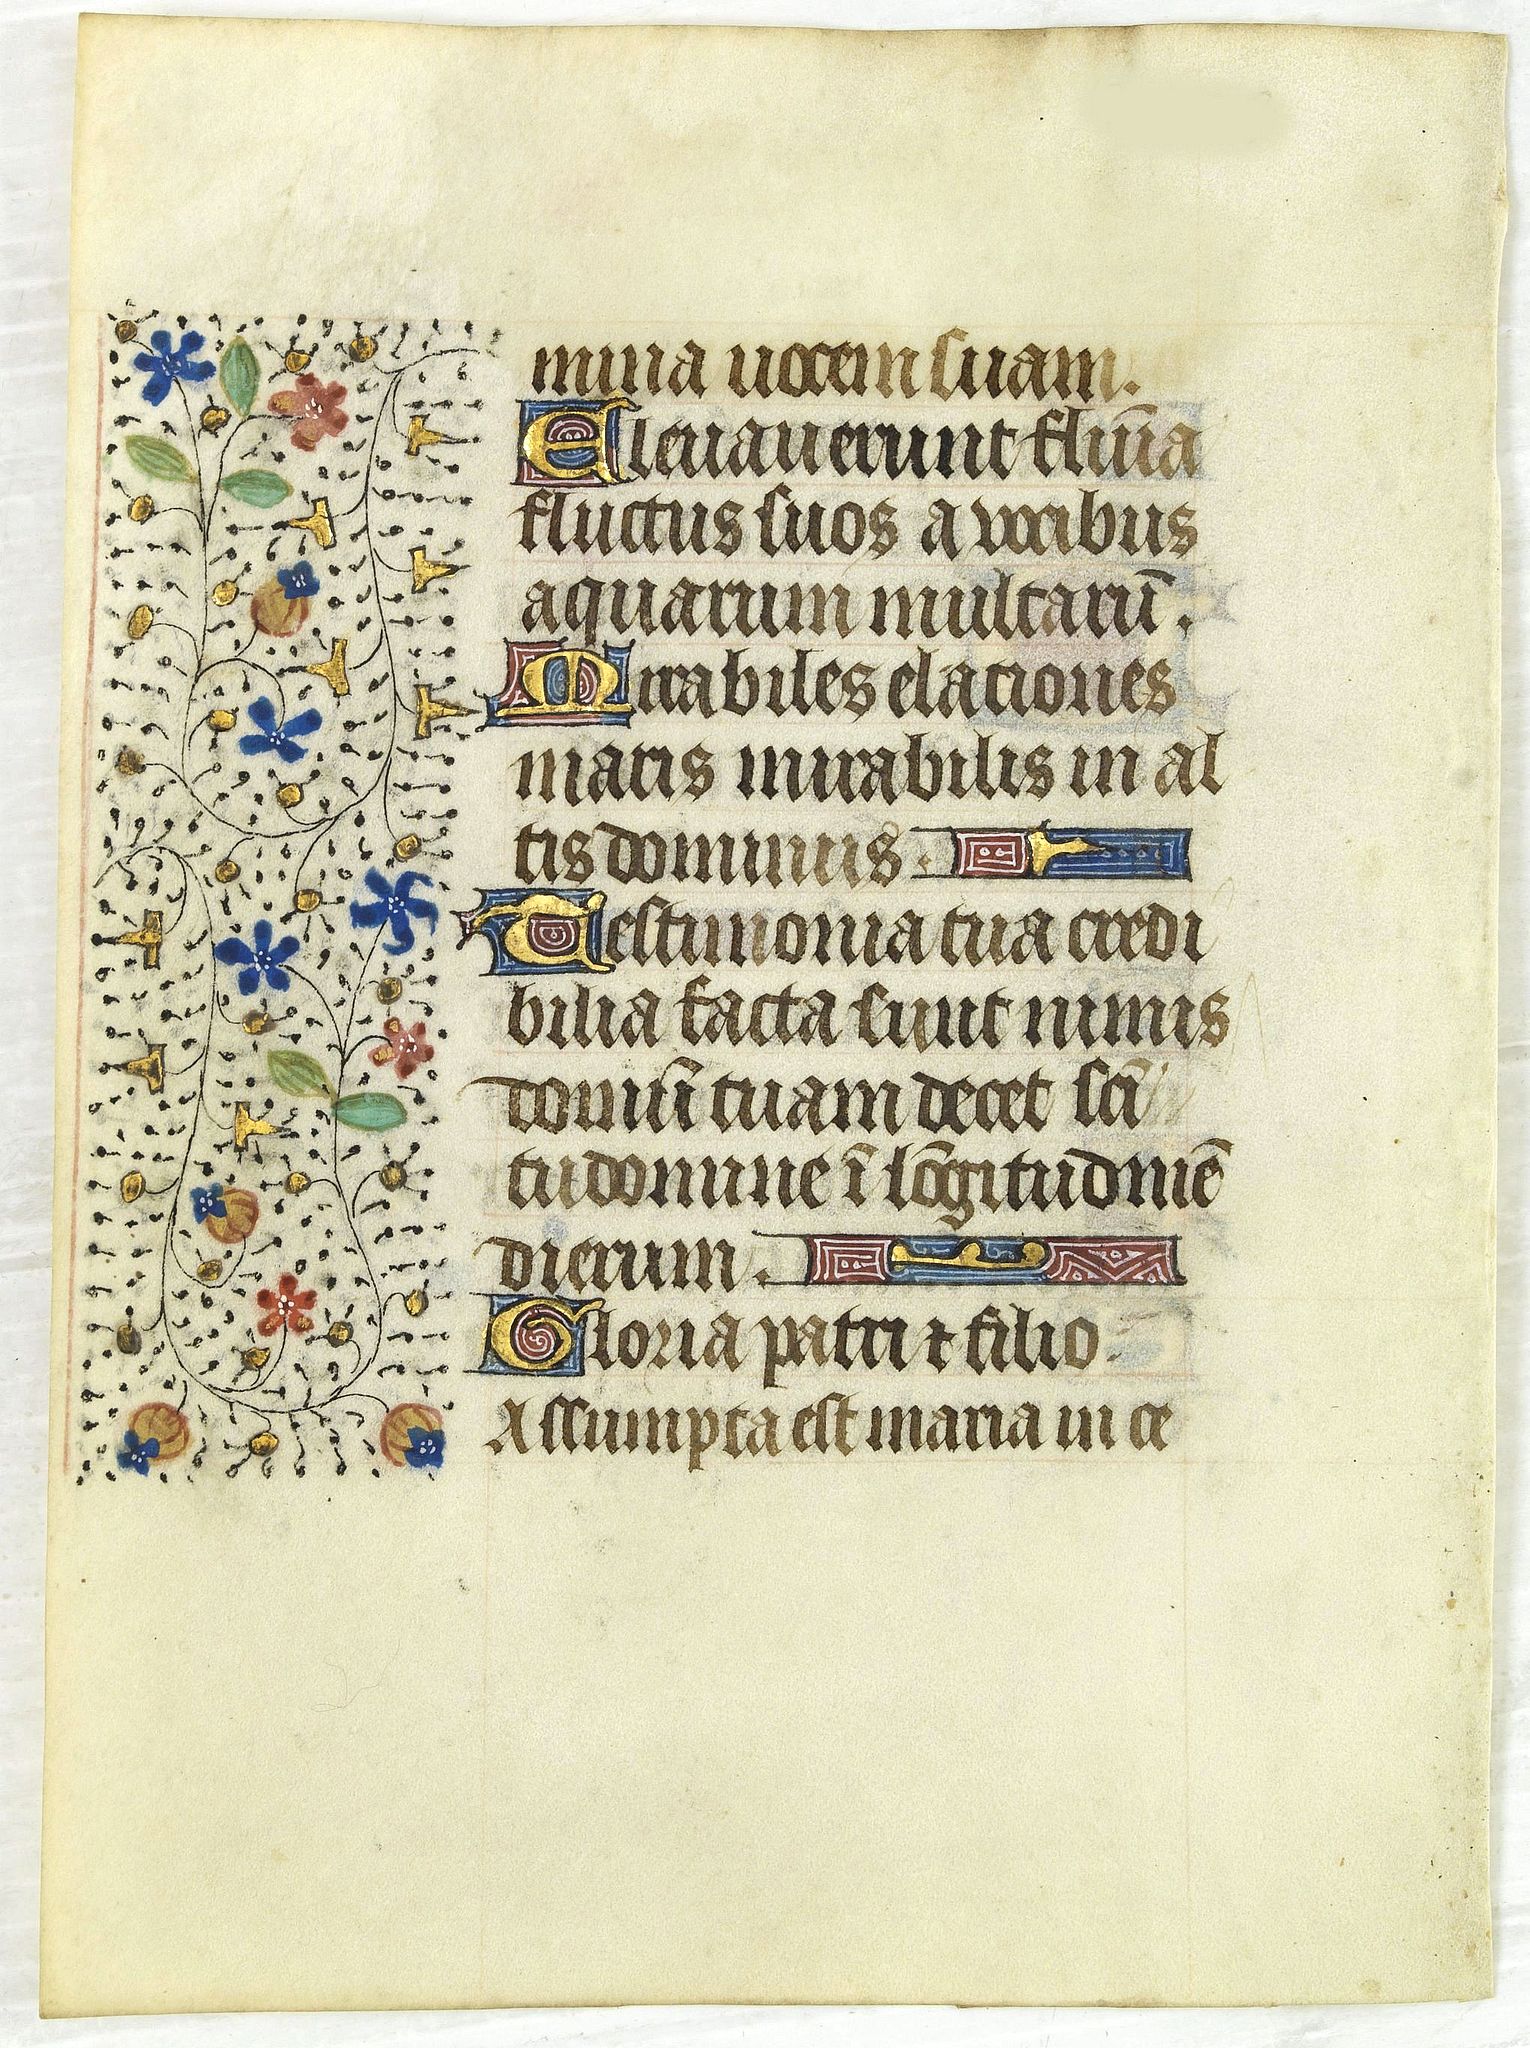 mina uocem suam.
Eleuauerunt flumīa
fluctus suos a vocibus
aquarum multarū.
Mirabiles elationes
maris mirabilis in al
tis dominus.
Testimonia tua credi
bilia facta sunt nimis
domū tuam decet scī
tudo domine ī lōgitudinē
dierum.
Gloria patri ⁊ filio.
Assumpta est maria in ce